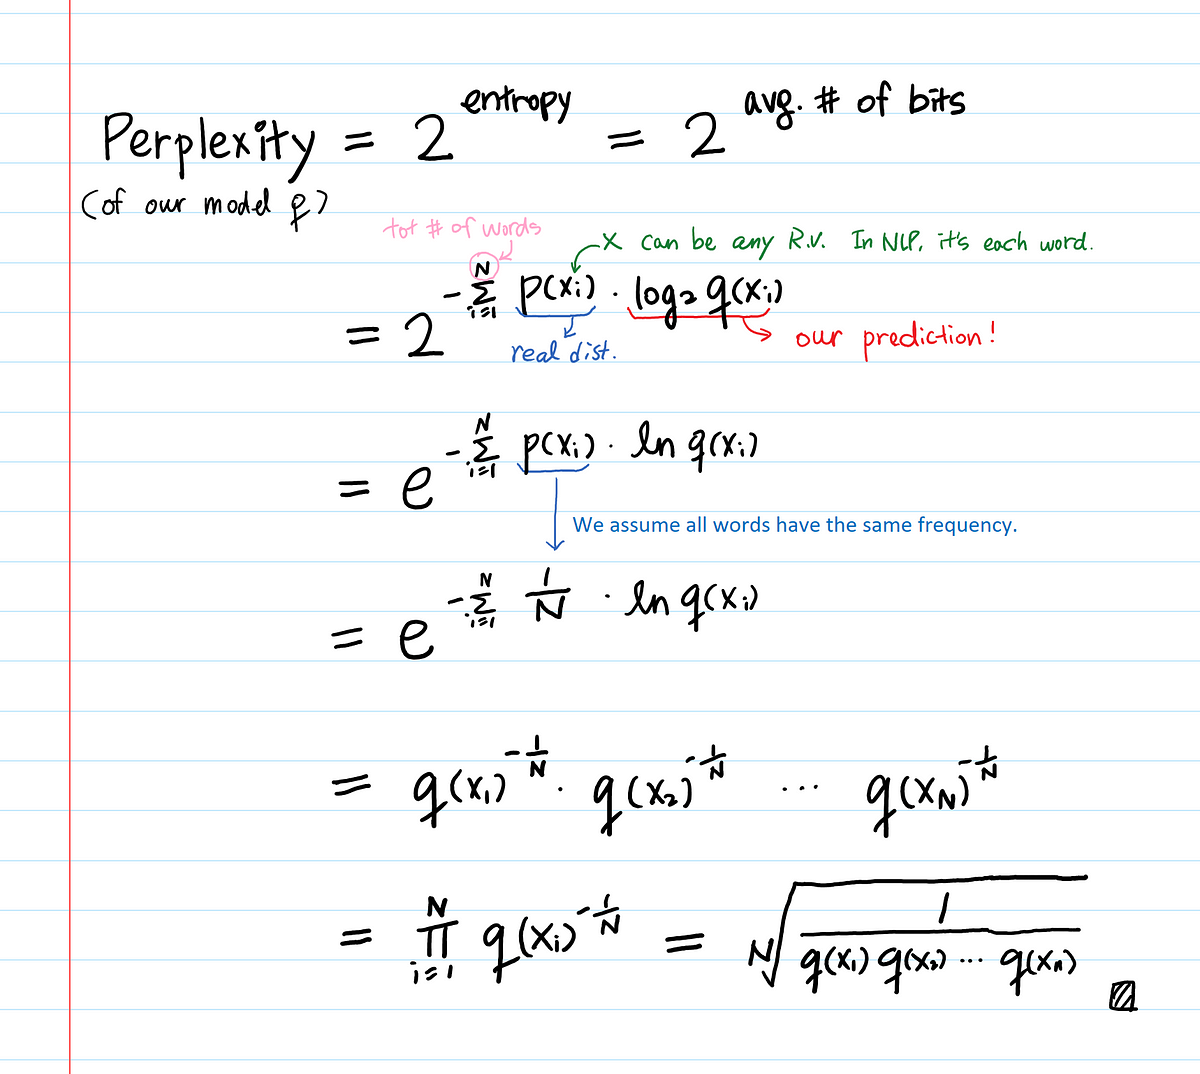 Perplexity = 2^entropy = 2^avg. # of bits
(of our model q)
tot # of words
x can be any R.V. In NLP, it's each word.
= 2^-Σ_{i=1}^{N} p(xi) · log₂ q(xi)
real dist.
our prediction!
= e^-Σ_{i=1}^{N} p(xi) · ln q(xi)
We assume all words have the same frequency.
= e^-Σ_{i=1}^{N} 1/N · ln q(xi)
= q(x₁)^-1/N · q(x₂)^-1/N ... q(xN)^-1/N
= Π_{i=1}^{N} q(xi)^-1/N = N√(1 / q(x₁) q(x₂) ... q(xn))